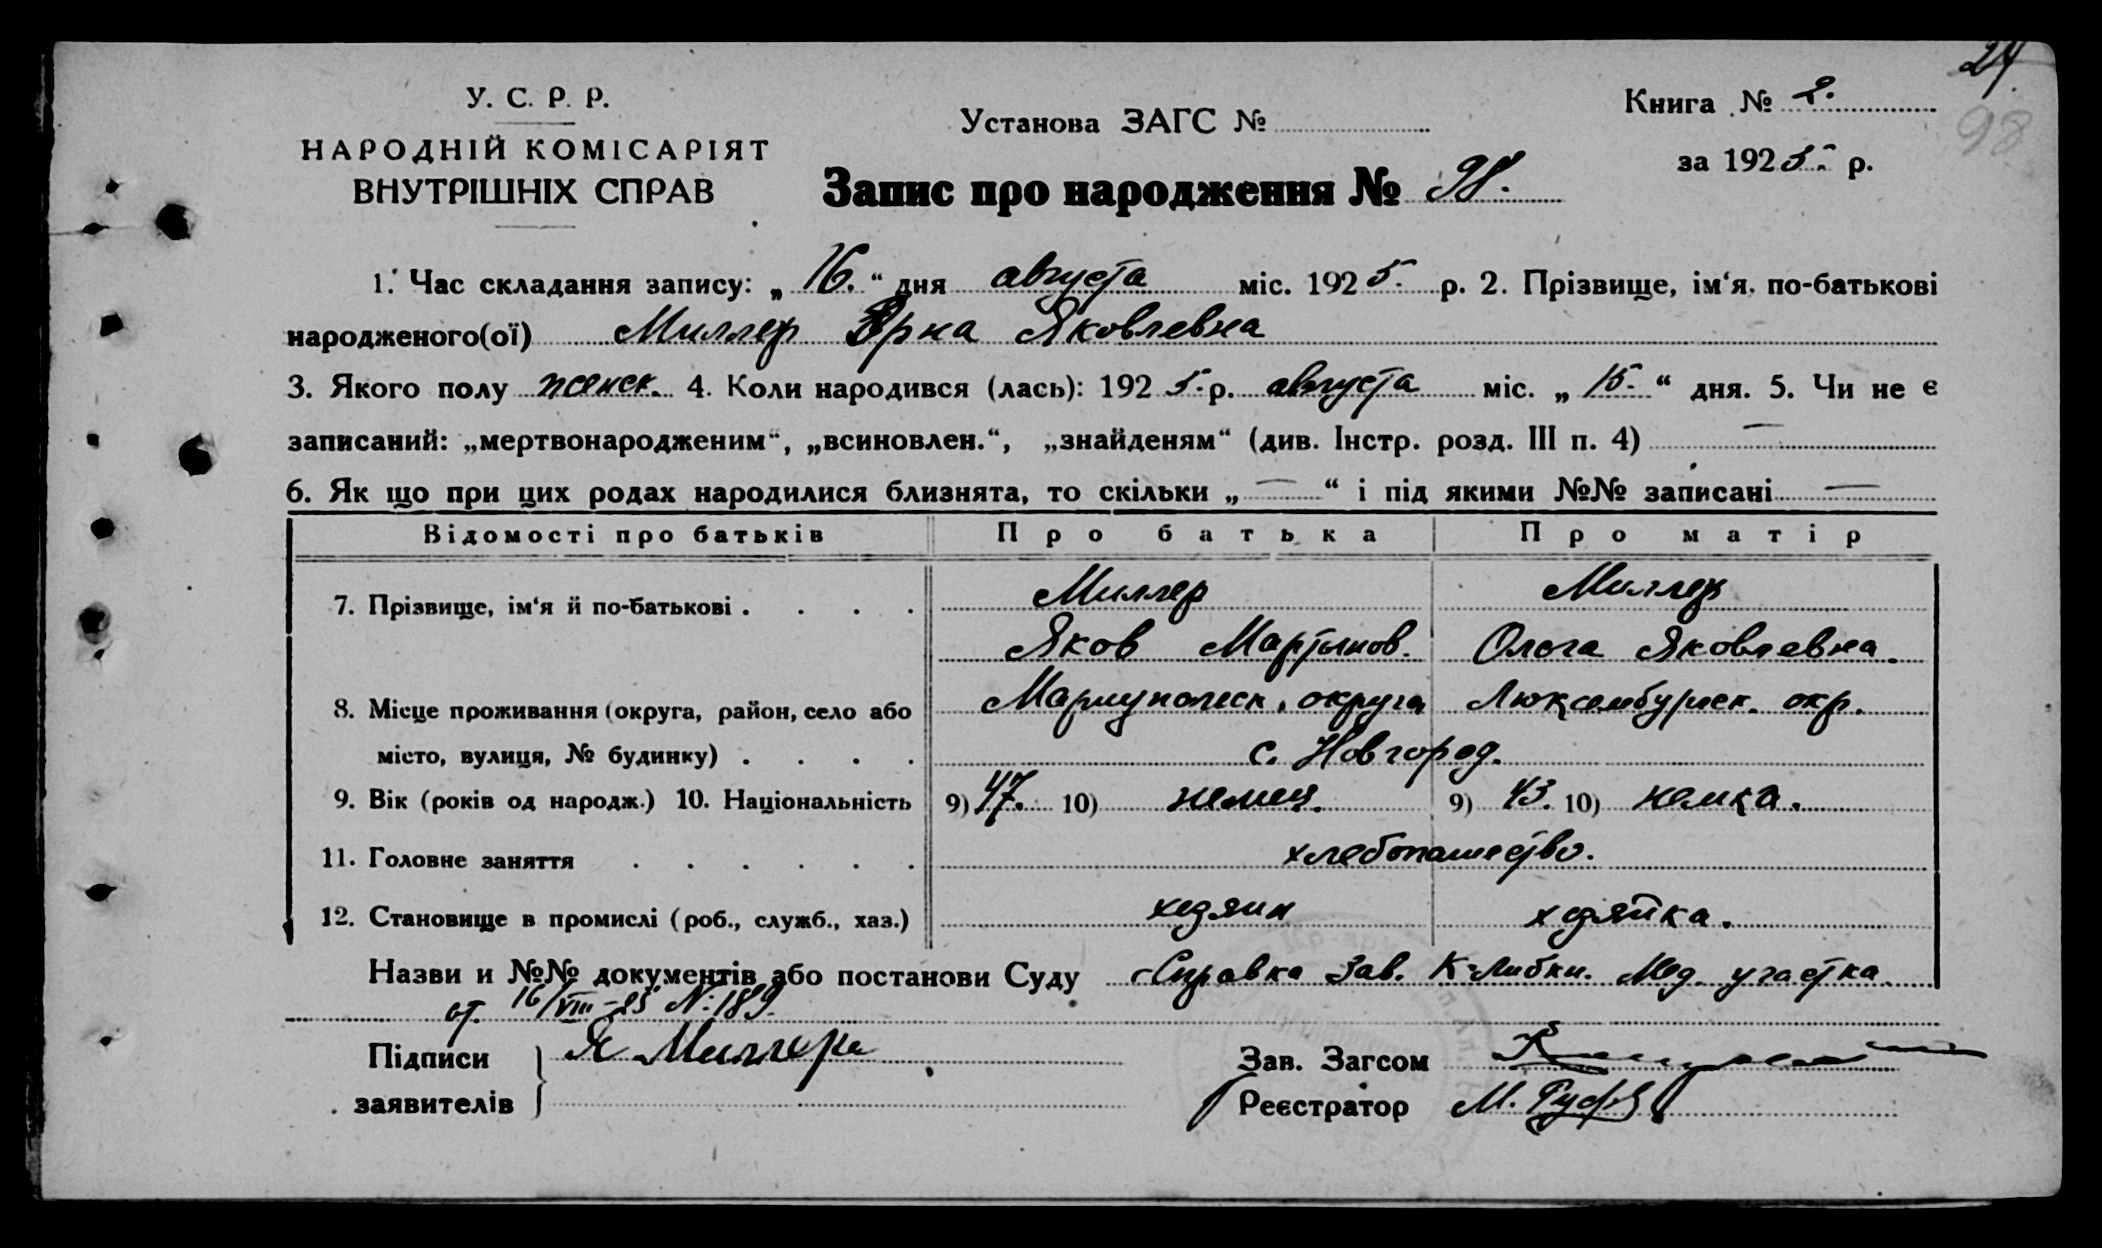 24
98
У. С. Р. Р.
НАРОДНІЙ КОМІСАРІЯТ
ВНУТРІШНІХ СПРАВ
Установа ЗАГС №
Запис про народження № 98.
Книга № 2.
за 1925 р.
1. Час складання запису: „16.“ дня августа міс. 1925. р. 2. Прізвище, ім‘я, по-батькові
народженого(ої) Миллер Эрна Яковлевна
3. Якого полу женск. 4. Коли народився (лась): 1925. р. августа міс. „15.“ дня. 5. Чи не є
записаний: „мертвонародженим“, „всиновлен.“, „знайденям“ (див. Інстр. розд. III п. 4) —
6. Як що при цих родах народилися близнята, то скільки „—“ і під якими №№ записані —
Відомості про батьків Про батька Про матір
7. Прізвище, ім‘я й по-батькові . . . . Миллер Миллер
Яков Мартынов. Ольга Яковлевна.
8. Місце проживання (округа, район, село або Мариупольск. округа Люксембургск. окр.
місто, вулиця, № будинку) . . . . с. Новгород.
9. Вік (років од народж.) 10. Національність 9) 47. 10) немец. 9) 43. 10) немка.
11. Головне заняття . . . . . . хлебопашество.
12. Становище в промислі (роб., служб., хаз.) хозяин хозяйка.
Назви и №№ документів або постанови Суду Справка Зав. К-Либкн. Мед. участка
от 16/VIII-25 N:189.
Підписи
заявителів
Я Миллера
Зав. Загсом
Реєстратор М.